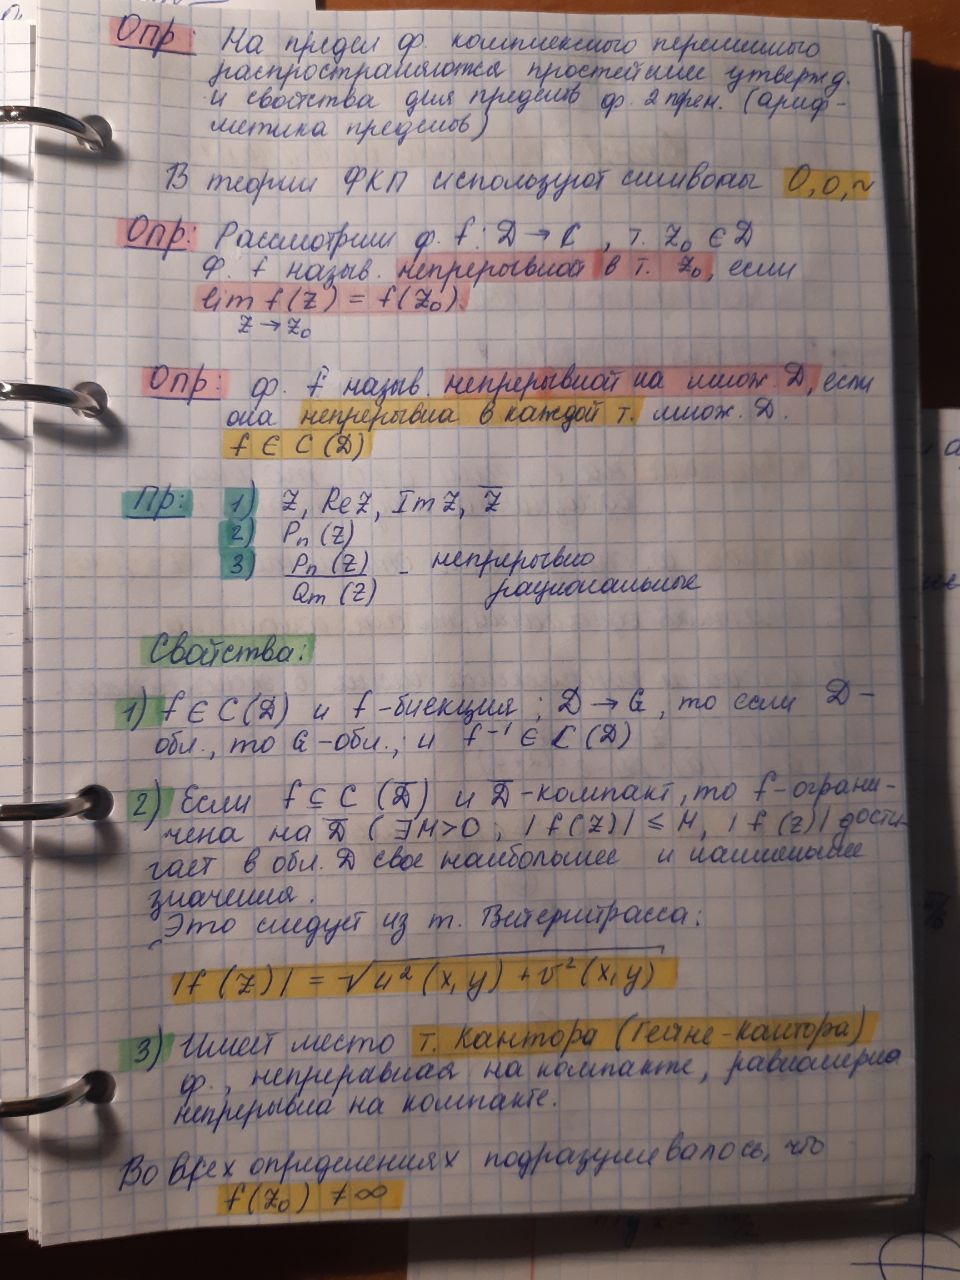 Опр: На предел ф. комплексного переменного
распространяются простейшие утвержд.
и свойства для пределов ф. 2 прем. (ариф-
метика пределов)
В теории ФКП используют символы O, o, ~
Опр: Рассмотрим ф. f: D → C, т. z₀ ∈ D
Ф. f назыв. непрерывной в т. z₀, если
lim f(z) = f(z₀).
z → z₀
Опр: ф. f назыв. непрерывной на множ. D, если
она непрерывна в каждой т. множ. D.
f ∈ C (D)
Пр: 1) z, Re z, Im z, z̅
2) Pn (z)
3) Pn (z) - непрерывно
Qm (z) рациональные
Свойства:
1) f ∈ C(D) и f - биекция ; D → G, то если D -
обл., то G - обл.; и f⁻¹ ∈ C (D)
2) Если f ⊆ C (D̅) и D̅ - компакт, то f - ограни-
чена на D̅ (∃M>0 ; |f(z)| ≤ M, |f(z)| дости-
гает в обл. D свое наибольшее и наименьшее
значения.
Это следует из т. Вейерштрасса:
|f(z)| = √u²(x,y) + v²(x,y)
3) Имеет место т. Кантора (Гейне-Кантора)
ф., непреравная на компакте, равномерна
непрерывна на компакте.
Во всех определениях подразумевалось, что
f(z₀) ≠ ∞